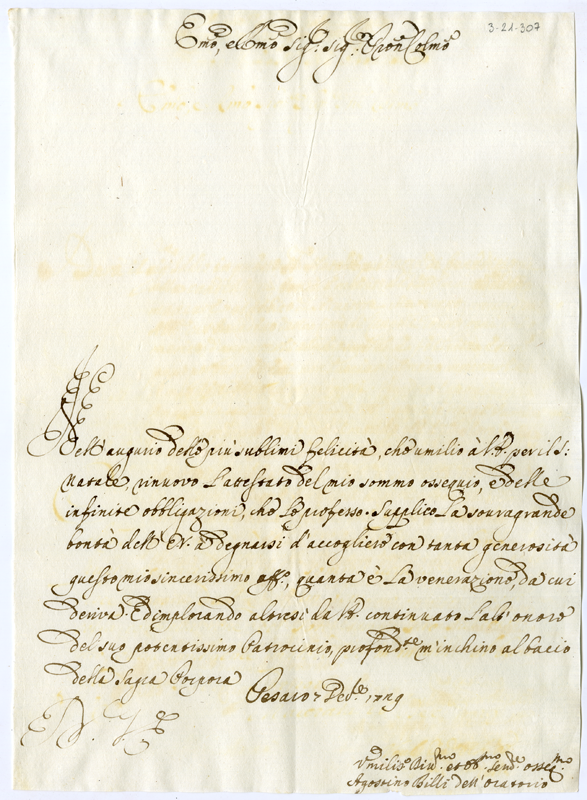 3-21-307
Emo, e Rmo Sig.r Sig.r Pron Colmo
Nell' augurio delle più sublimi felicità, che umilio à V.E. per il S:
Natale, rinuovo l'attestato del mio sommo ossequio, e delle
infinite obbligazioni, che le professo. Supplico la souragrande
bontà dell' E.V. a degnarsi d'accogliere con tanta generosità
questo mio sincerissimo aff.o, quanta è la venerazione, da cui
deriva. Ed implorando altresi da V.E. continuato l'alt' onore
del suo potentissimo Patrocinio, profond.te m'inchino al bacio
della Sagra Porpora
Pesaro 7 Xbre
Umiliss.mo Div.mo et Obb.mo Serv.e osseq.mo
Agostino Billi dell' Oratorio